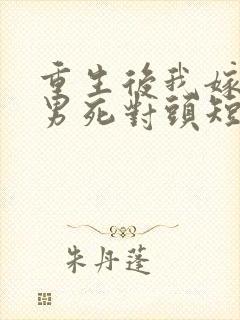 重生後我嫁
男死對頭短
朱丹蓬